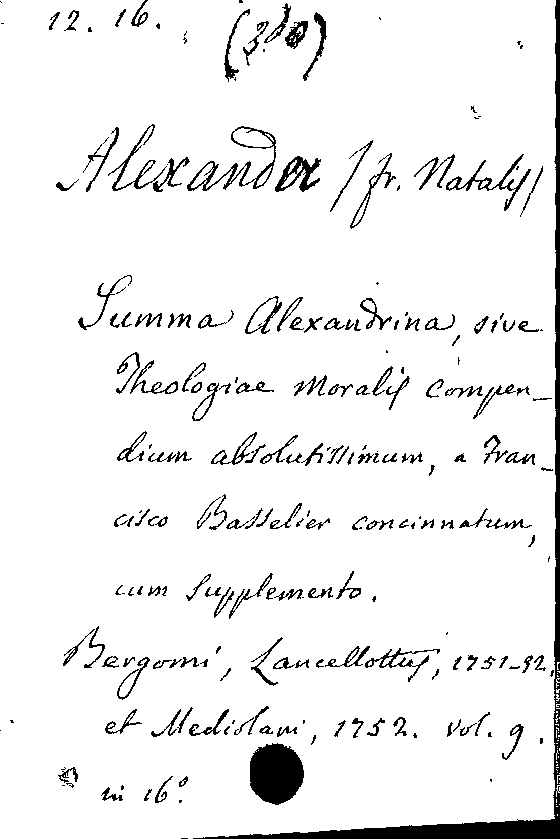 12. 16.
Alexander /fr. Natalis/
Summa Alexandrina, sive
Theologiae Moralis Compen-
dium absolutissimum, a Fran-
cisco Basselier concinnatum,
cum Supplemento.
Bergomi, Lancellottus, 1751-52,
et Mediolani, 1752. Vol. 9.
in 16º.